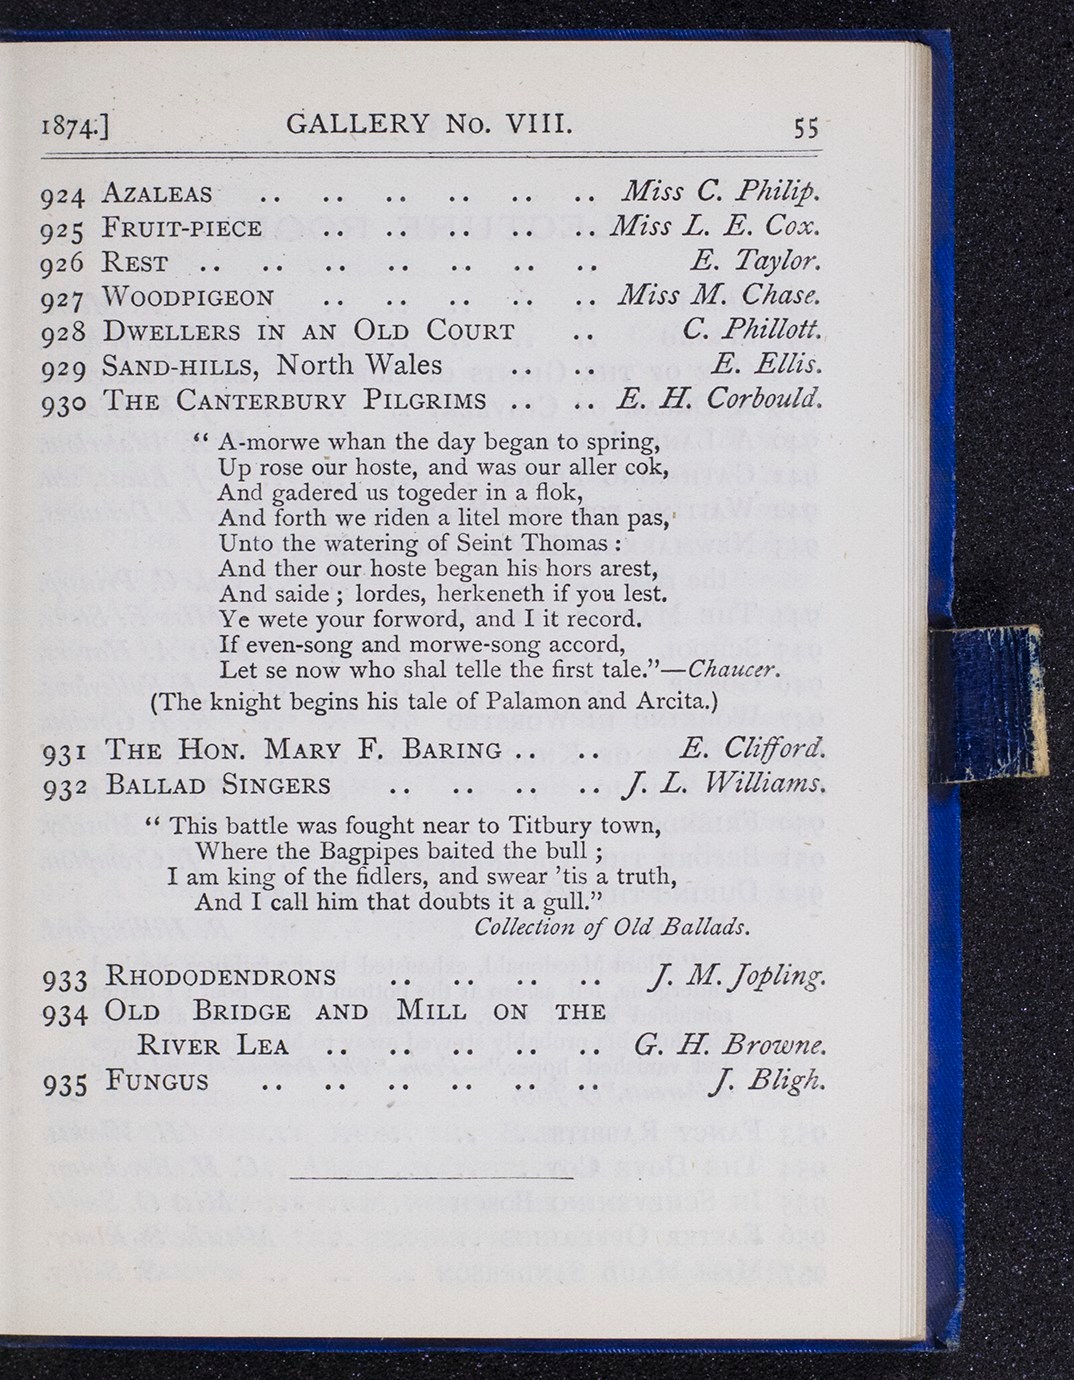 1874.] GALLERY No. VIII. 55
924 AZALEAS .. .. .. .. .. .. Miss C. Philip.
925 FRUIT-PIECE .. .. .. .. .. Miss L. E. Cox.
926 REST .. .. .. .. .. .. .. E. Taylor.
927 WOODPIGEON .. .. .. .. .. Miss M. Chase.
928 DWELLERS IN AN OLD COURT .. C. Phillott.
929 SAND-HILLS, North Wales .. .. E. Ellis.
930 THE CANTERBURY PILGRIMS .. .. E. H. Corbould.
“ A-morwe whan the day began to spring,
Up rose our hoste, and was our aller cok,
And gadered us togeder in a flok,
And forth we riden a litel more than pas,
Unto the watering of Seint Thomas :
And ther our hoste began his hors arest,
And saide ; lordes, herkeneth if you lest.
Ye wete your forword, and I it record.
If even-song and morwe-song accord,
Let se now who shal telle the first tale.”—Chaucer.
(The knight begins his tale of Palamon and Arcita.)
931 THE HON. MARY F. BARING .. .. E. Clifford.
932 BALLAD SINGERS .. .. .. .. J. L. Williams.
“ This battle was fought near to Titbury town,
Where the Bagpipes baited the bull ;
I am king of the fidlers, and swear ’tis a truth,
And I call him that doubts it a gull.”
Collection of Old Ballads.
933 RHODODENDRONS .. .. .. .. J. M. Jopling.
934 OLD BRIDGE AND MILL ON THE
RIVER LEA .. .. .. .. .. G. H. Browne.
935 FUNGUS .. .. .. .. .. .. J. Bligh.